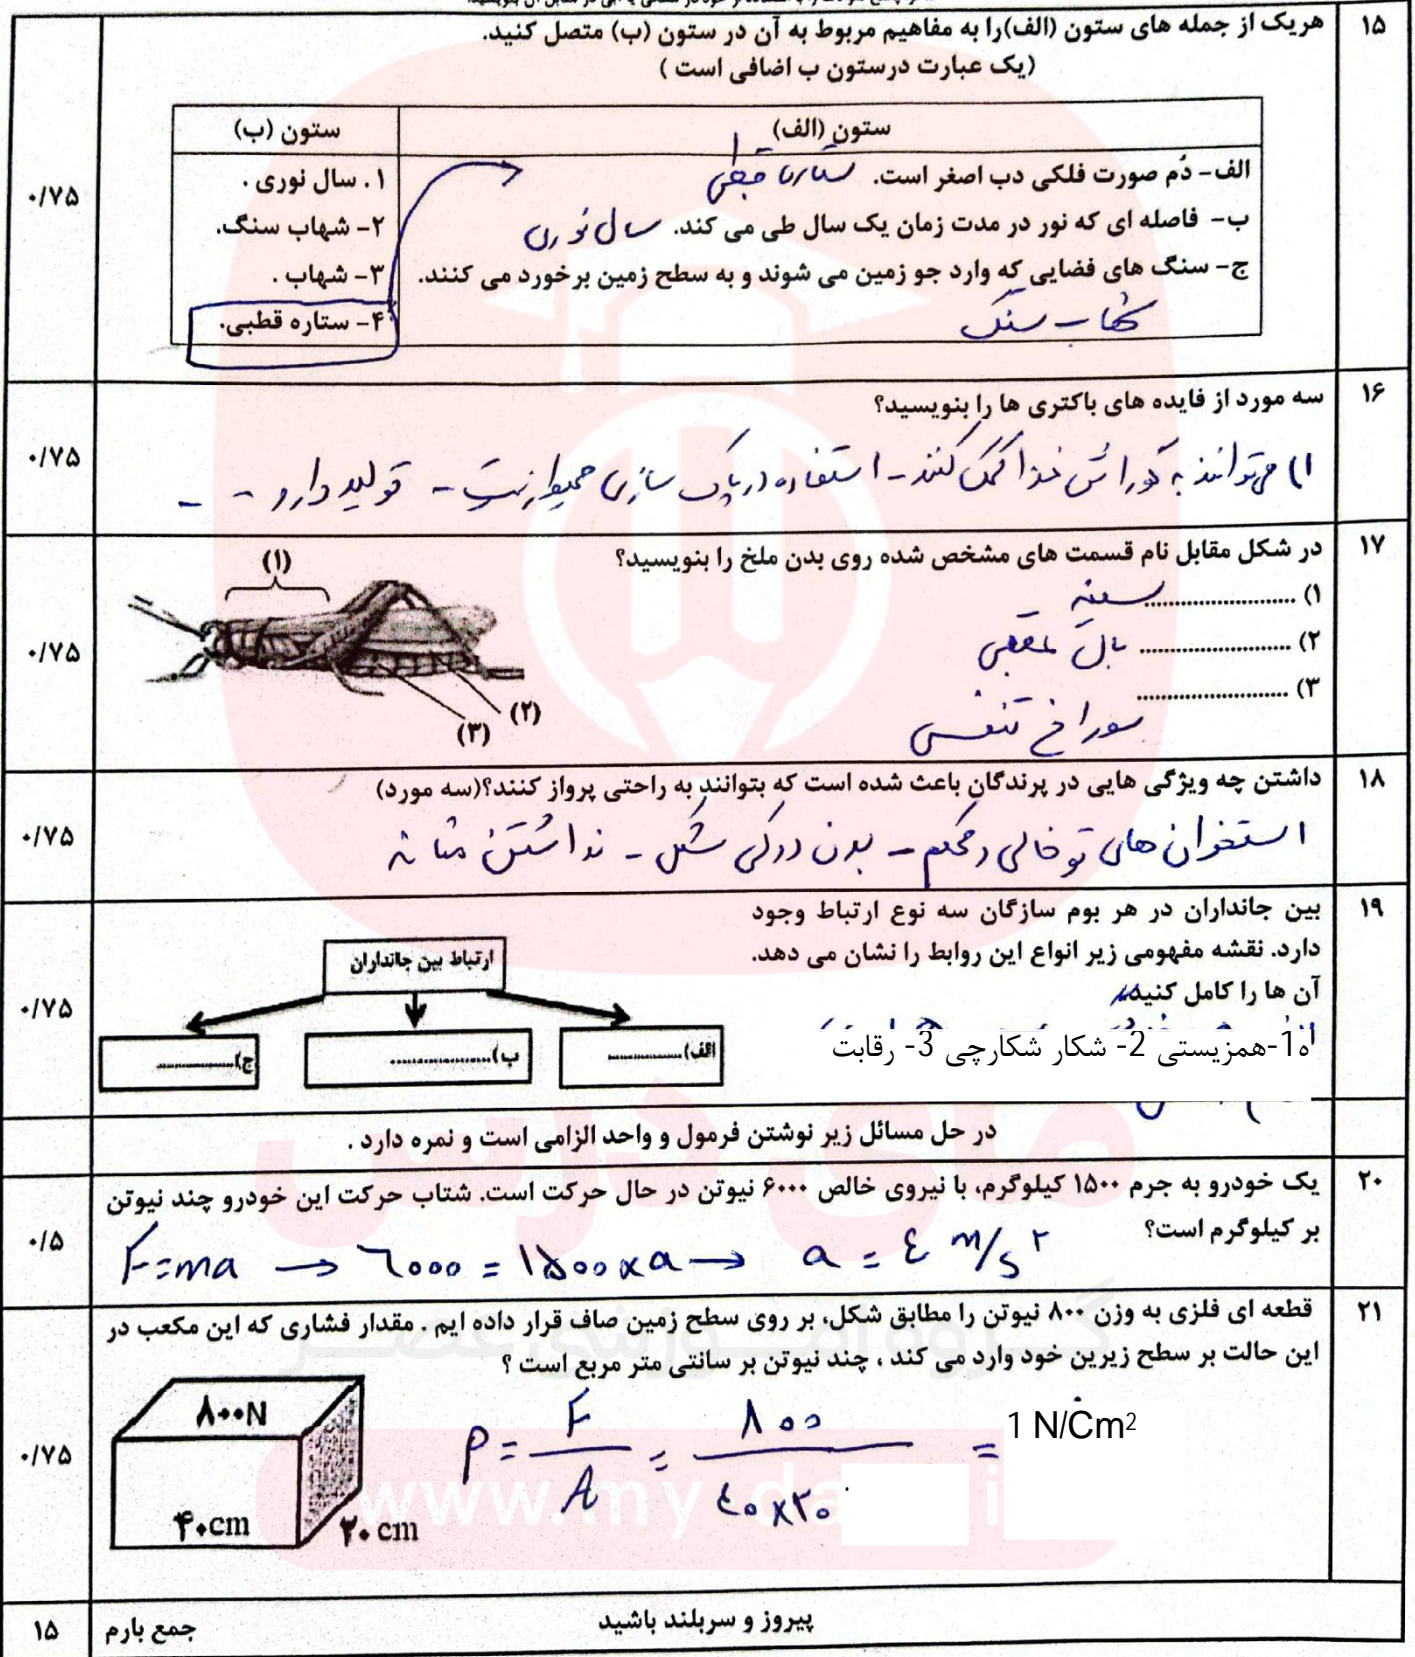 ۱۵
هریک از جمله های ستون (الف)را به مفاهیم مربوط به آن در ستون (ب) متصل کنید.
(یک عبارت درستون ب اضافی است )
ستون (الف)
ستون (ب)
الف- دُم صورت فلکی دب اصغر است. ستاره قطبی
۱. سال نوری .
ب- فاصله ای که نور در مدت زمان یک سال طی می کند. سال نوری
۲- شهاب سنگ.
ج- سنگ های فضایی که وارد جو زمین می شوند و به سطح زمین برخورد می کنند.
۳- شهاب .
شهاب سنگ
۴- ستاره قطبی.
۰/۷۵
۱۶
سه مورد از فایده های باکتری ها را بنویسید؟
۱) می توانند به گوارش غذا کمک کنند - استفاده در پاک سازی محیط زیست - تولید دارو - -
۰/۷۵
۱۷
در شکل مقابل نام قسمت های مشخص شده روی بدن ملخ را بنویسید؟
۱) .......................... سینه
۲) .......................... بال عقبی
۳) ..........................
سوراخ تنفسی
(۱)
(۲)
(۳)
۰/۷۵
۱۸
داشتن چه ویژگی هایی در پرندگان باعث شده است که بتوانند به راحتی پرواز کنند؟(سه مورد)
استخوان های تو خالی و محکم - بدن دوکی شکل - نداشتن مثانه
۰/۷۵
۱۹
بین جانداران در هر بوم سازگان سه نوع ارتباط وجود
دارد. نقشه مفهومی زیر انواع این روابط را نشان می دهد.
آن ها را کامل کنید
1-همزیستی 2- شکار شکارچی 3- رقابت
ارتباط بین جانداران
الف)...............
ب)...................
ج)...............
۰/۷۵
در حل مسائل زیر نوشتن فرمول و واحد الزامی است و نمره دارد .
۲۰
یک خودرو به جرم ۱۵۰۰ کیلوگرم، با نیروی خالص ۶۰۰۰ نیوتن در حال حرکت است. شتاب حرکت این خودرو چند نیوتن
بر کیلوگرم است؟
F=ma → ٦٥٥٥ = ١۵٥٥×a → a = ٤ m/s ۲
۰/۵
۲۱
قطعه ای فلزی به وزن ۸۰۰ نیوتن را مطابق شکل، بر روی سطح زمین صاف قرار داده ایم . مقدار فشاری که این مکعب در
این حالت بر سطح زیرین خود وارد می کند ، چند نیوتن بر سانتی متر مربع است ؟
P = F/A = ۸۰۰/٤۰×۲۰ = 1 N/Cm²
۸۰۰N
۴۰cm
۲۰ cm
۰/۷۵
پیروز و سربلند باشید
جمع بارم
۱۵
مای درس
گروه آموزشی عصر